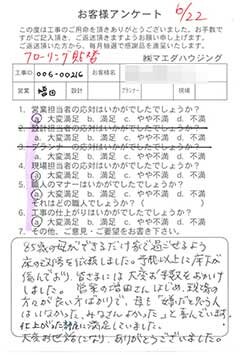 お客様アンケート 6/22
この度は工事のご用命を頂きありがとうございました。お手数で
すがご記入頂き、ご返送頂きますようお願い申し上げます。
ご返送頂いた方から、毎月抽選で感謝品を進呈いたします。
フローリング貼替
工事ID 006-00216 お客様名 ㈱マエダハウジング
営業 設計 プランナー 現場
1. 営業担当者の応対はいかがでしたでしょうか?
a 大変満足 b. 満足 c. やや不満 d. 不満
2. 設計担当者の応対はいかがでしたでしょうか?
a. 大変満足 b. 満足 c. やや不満 d. 不満
3. プランナーの応対はいかがでしたでしょうか?
a. 大変満足 b. 満足 c. やや不満 d. 不満
4. 現場担当者の応対はいかがでしたでしょうか?
a 大変満足 b. 満足 c. やや不満 d. 不満
5. 職人のマナーはいかがでしたでしょうか?
a 大変満足 b. 満足 c. やや不満 d. 不満
それはどの職人でしょうか?( )
6. 工事の仕上がりはいかがでしたでしょうか?
a 大変満足 b. 満足 c. やや不満 d. 不満
7. その他、ご意見・ご要望をお書き下さい。
85歳の母ができるだけ家で過ごせるよう
床の対応を伝較しました。予想以上に床下が
傷んでおり、皆さまには大変お手数をおかけ
しました。営業の増田さんはじめ、現場の
方々が良い方ばかりで、母も"嫌だと思う人
はいなかった、みなさんよかった"と喜んでいます。
仕上がった静度に満足していました。
大変お世話になり、ありがとうございました。